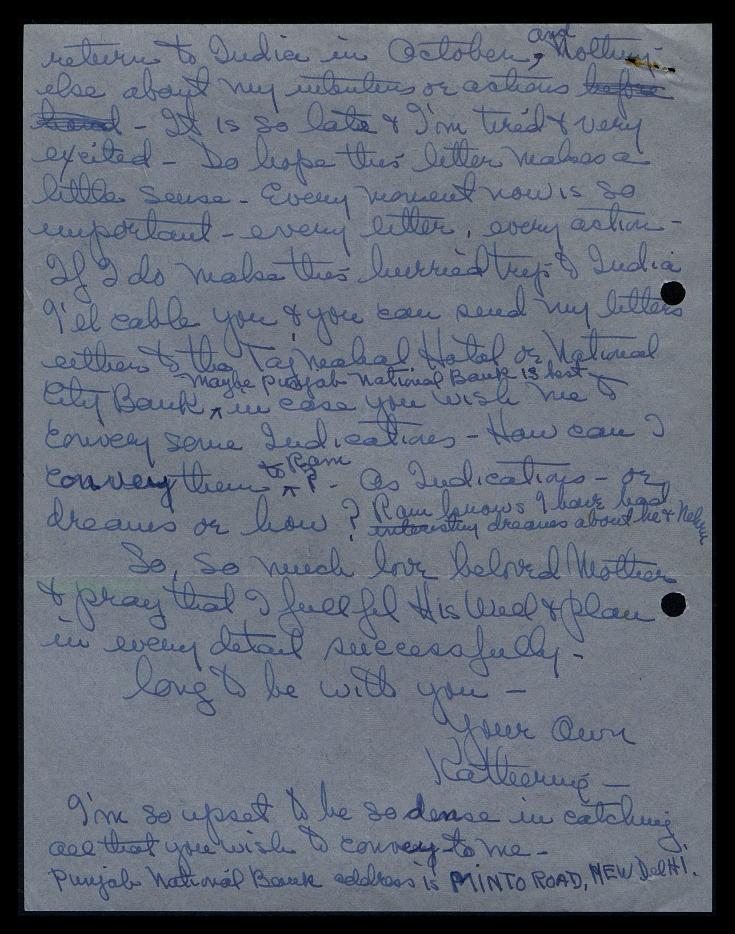 and
return to India in October, nothing
else about my intentions or actions before
hand - It is so late & I'm tired & very
excited - Do hope this letter makes a
little sense - Every moment now is so
important - every letter, every action -
If I do make this hurried trip to India
I'll cable you & you can send my letters
either to the Taj Mahal Hotel or National
Maybe Punjab National Bank is best -
City Bank, in case you wish me to
convey some Indications - How can I
to Ram
convey them ? - as Indications - or
dreams or how ? Ram knows I have had
interesting dreams about he & Nehru
So, so much love beloved Mother
& pray that I fullfil His Will & plan
in every detail successfully -
long to be with you -
Your Own
Katherine -
I'm so upset to be so dense in catching
all that you wish to convey to me -
Punjab National Bank address is MINTO ROAD, NEW DelHI.